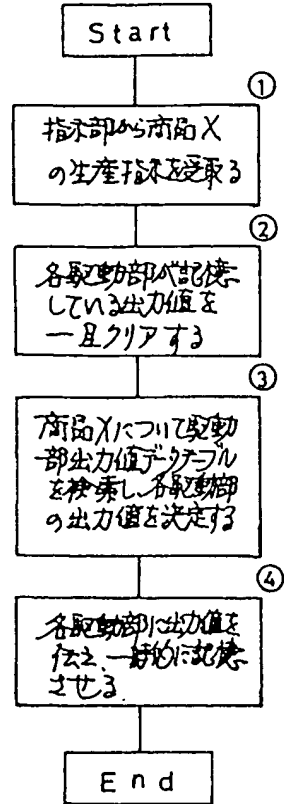 Start
①
指示部から商品X
の生産指示を受取る
②
各駆動部が記憶
している出力値を
一旦クリアする
③
商品Xについて駆動
部出力値データテーブル
を検索し、各駆動部
の出力値を決定する
④
各駆動部に出力値を
伝え、一時的に記憶
させる.
End